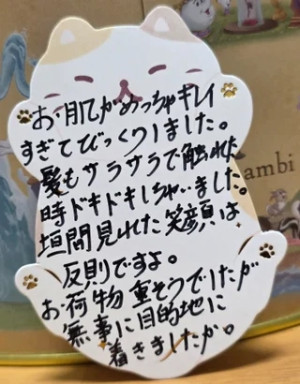 お肌がめっちゃキレイ
すぎてびっくりしました。
髪もサラサラで触れた
時ドキドキしちゃいました。
垣間見れた笑顔は
反則ですよ。
お荷物重そうでしたが
無事に目的地に
着きましたか。
ambi